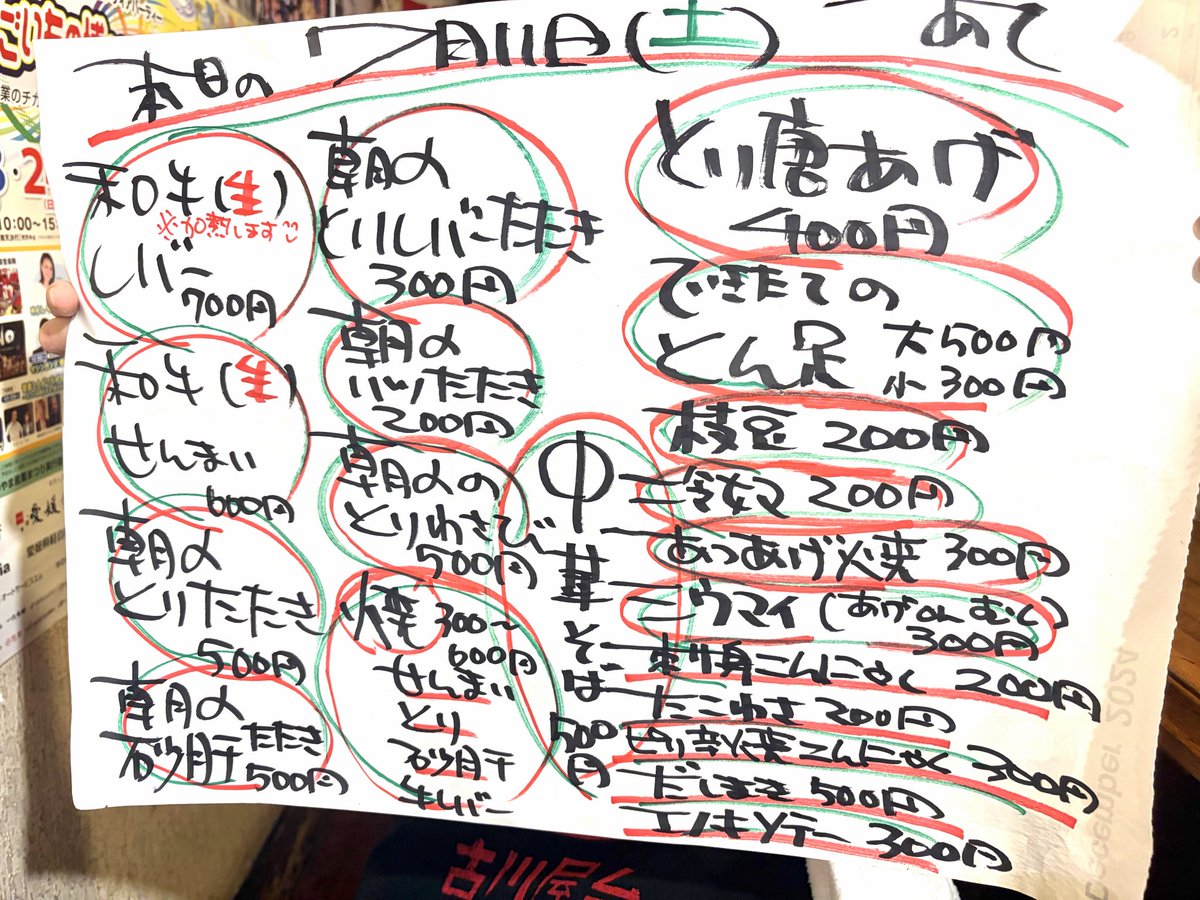 本日の 7月11日(土) あて
和牛(生)
※加熱します
レバー
700円
和牛(生)
せんまい
600円
朝〆
とりたたき
500円
朝〆
砂肝たたき
500円
朝〆
とりレバーたたき
300円
朝〆
ハツたたき
200円
朝〆の
とりわさび
500円
焼 300〜
600円
せんまい
とり
砂肝
牛レバー
中華そば
500円
とり唐あげ
400円
できたての
とん足
大500円
小300円
枝豆 200円
冷奴 200円
あつあげ焼 300円
ウマイ(あげorむし)
300円
刺身こんにゃく 200円
たこわさ 200円
ピリ辛焼こんにゃく 300円
だしまき 500円
エノキソテー 300円
古川屋台
10:00〜15
December 2024